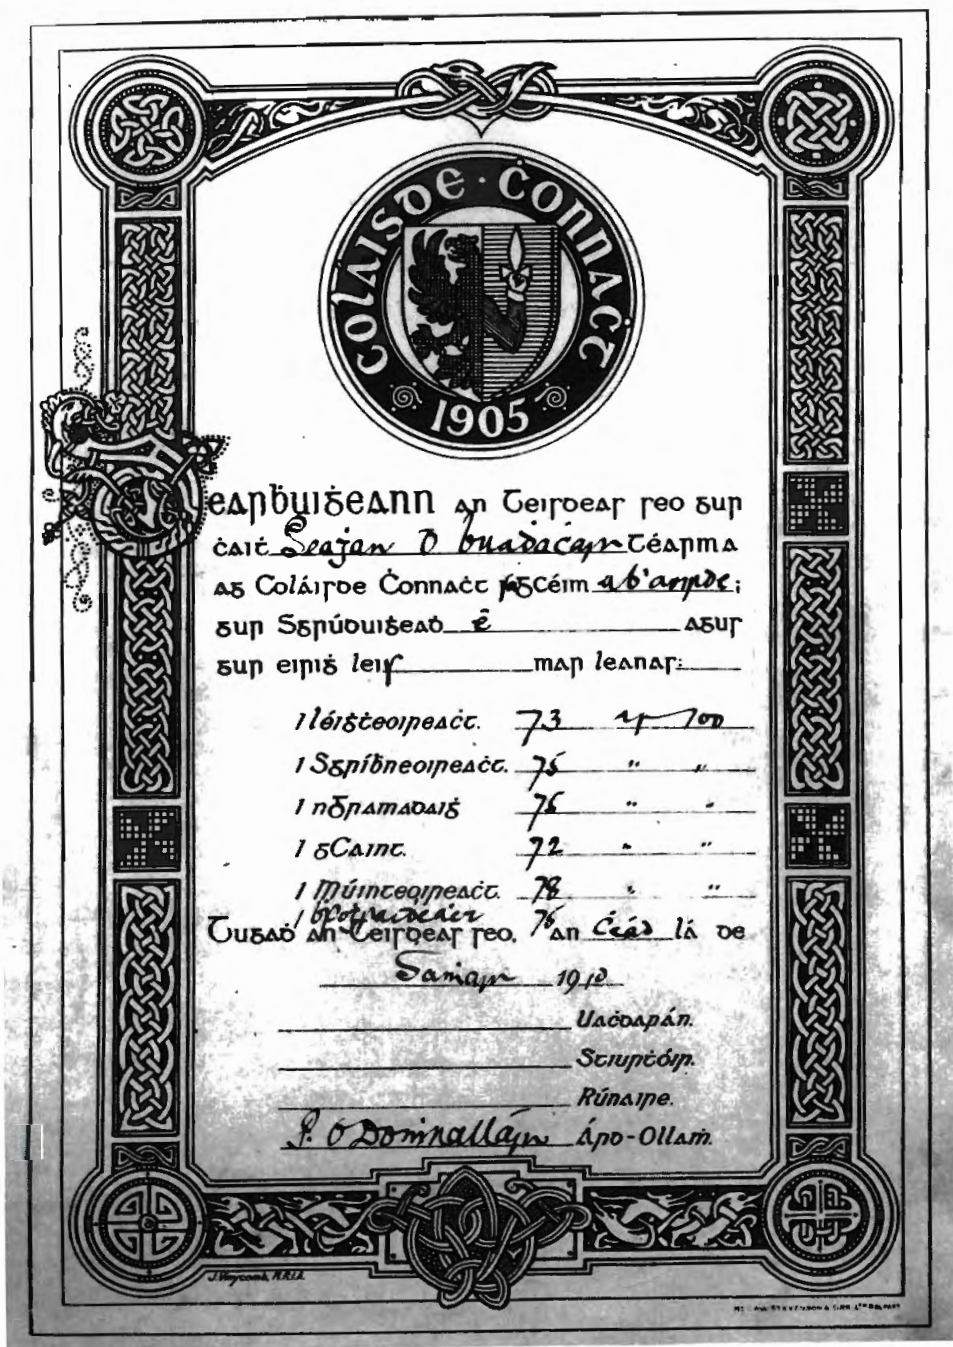 COLÁISDE · ĊONNAĊT
1905
Tearbuiġeann an Teisdeas seo gur
ċaiṫ Seaġan Ó Buadaċáin Téarma
ag Coláisde Ċonnaċt Céim ; 
gur Sgrúduiġeaḋ é agus
gur eiriġ leis mar leanas:
I léiġṫeoireaċt. 73 as 100
I Sgríḃneoireaċt. 75 " "
I nGramadaiġ 75 " "
I gCaint. 72 " "
I Múinteoireaċt. 78 " "
I 75
Tugaḋ an Teisdeas seo, an Ċéad lá de
Saṁain 1910
Uaċdarán.
Stiurṫóir.
Rúnaire.
P. Ó Doṁnalláin Árd-Ollaṁ.
J. Vinycomb, M.R.I.A.